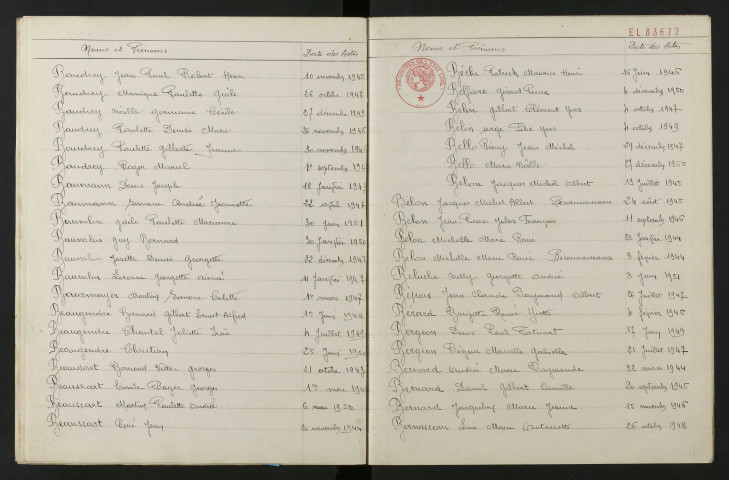 Noms et Prénoms Date des Actes
Baudrey Jean Paul Robert Henri 10 novembre 194
Baudrey Monique Paulette Gisèle 26 octobre 1942
Baudrey Noëlle Germaine Cécile 27 décembre 1949
Baudrey Paulette Denise Marie 26 novembre 1946
Baudrey Paulette Gilberte Jeanne 30 novembre 194
Baudrey Roger Marcel 1er septembre 194
Baumann Denis Joseph 18 Janvier 194
Baumann Simone Andrée Jeannette 22 1947
Baumlin Gisèle Paulette Marianne 30 Juin 1951
Baumlin Guy Bernard 30 Janvier 1950
Baumlin Josette Denise Georgette 22 décembre 194
Baumlin Georgette Aimée 11 Janvier 1947
Bausmayer Martine Simone Colette 1er mars 1947
Beaugendre Bernard Gilbert Ernest Alfred 15 Juin 194
Beaugendre Chantal Juliette 4 Juillet 1949
Beaugendre Christian 25 Juin 1950
Beaussart Bernard Victor Georges 31 octobre 194
Beaussart Emile Roger Georges 1er mai 194
Beaussart Martine Paulette Andrée 6 mai 1950
Beaussart René Jean 20 novembre 1944
EL 83672
Noms et Prénoms Date des Actes
Bèche Patrick Maurice Henri 15 Juin 1946
Belfiore Gérard Pierre 4 décembre 1950
Belin Gilbert Clément Yves 4 octobre 1947
Belin Serge Yves 4 octobre 1949
Belle Rémy Jean Michel 29 décembre 1947
Belle Marie Noëlle 27 décembre 1950
Belon Jacques Michel Albert 13 Juillet 1945
Belon Jacques Michel Albert Reconnaissance 24 août 1945
Belon Jean-Pierre Jules François 11 septembre 1946
Belon Michelle Marie Pierre 28 Janvier 1944
Belon Michelle Marie Pierre Reconnaissance 8 février 1944
Beluche Nelly Georgette Andrée 3 Juin 1951
Jean Claude Raymond Albert 26 Juillet 1947
Bérard Brigitte Renée Yvette 4 février 1946
Bergeon Denis Paul Fortunat 17 Juin 1949
Bergeon Régine Marcelle Gabrielle 21 Juillet 1947
Bernard Andrée Marie Raymonde 22 mars 1944
Bernard Daniel Gilbert Camille 20 septembre 1945
Bernard Jacqueline Marie Jeanne 12 novembre 1946
Bernasconi Marie Antoinette 26 octobre 1948